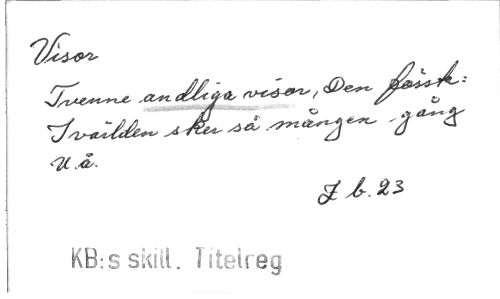 Visor
Tvenne andliga visor, Den förstk:
I världen sker så mången gång
U.å.
J b. 23
KB:s skill. Titelreg